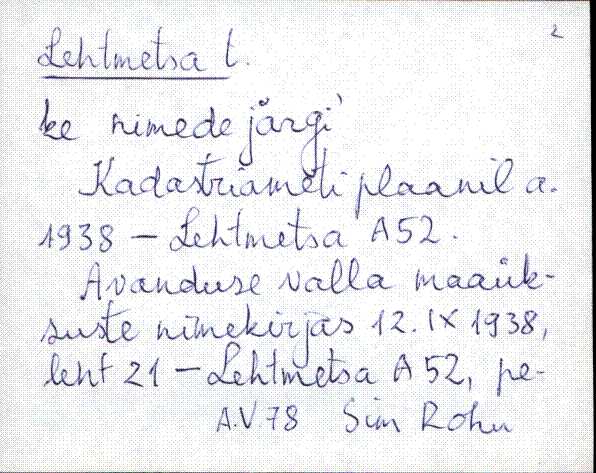 2
Lehtmetsa t.
ke nimede järgi
Kadastriameti plaanil a.
1938 – Lehtmetsa A 52.
Avanduse valla maaük-
suste nimekirjas 12. IX 1938,
leht 21 – Lehtmetsa A 52, pe-
A.V.78 Sim Rohu